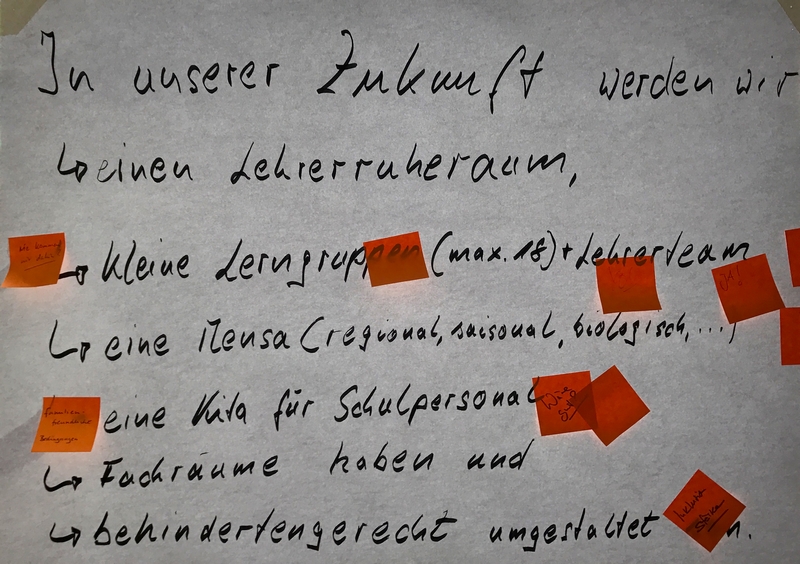 In unserer Zukunft werden wir
↳ einen Lehrerruheraum,
↳ kleine Lerngruppen (max. 18) + Lehrerteam
↳ eine Mensa (regional, saisonal, biologisch, ...)
eine Kita für Schulpersonal
↳ Fachräume haben und
↳ behindertengerecht umgestaltet n.
Wie
JA!
Bedingungen